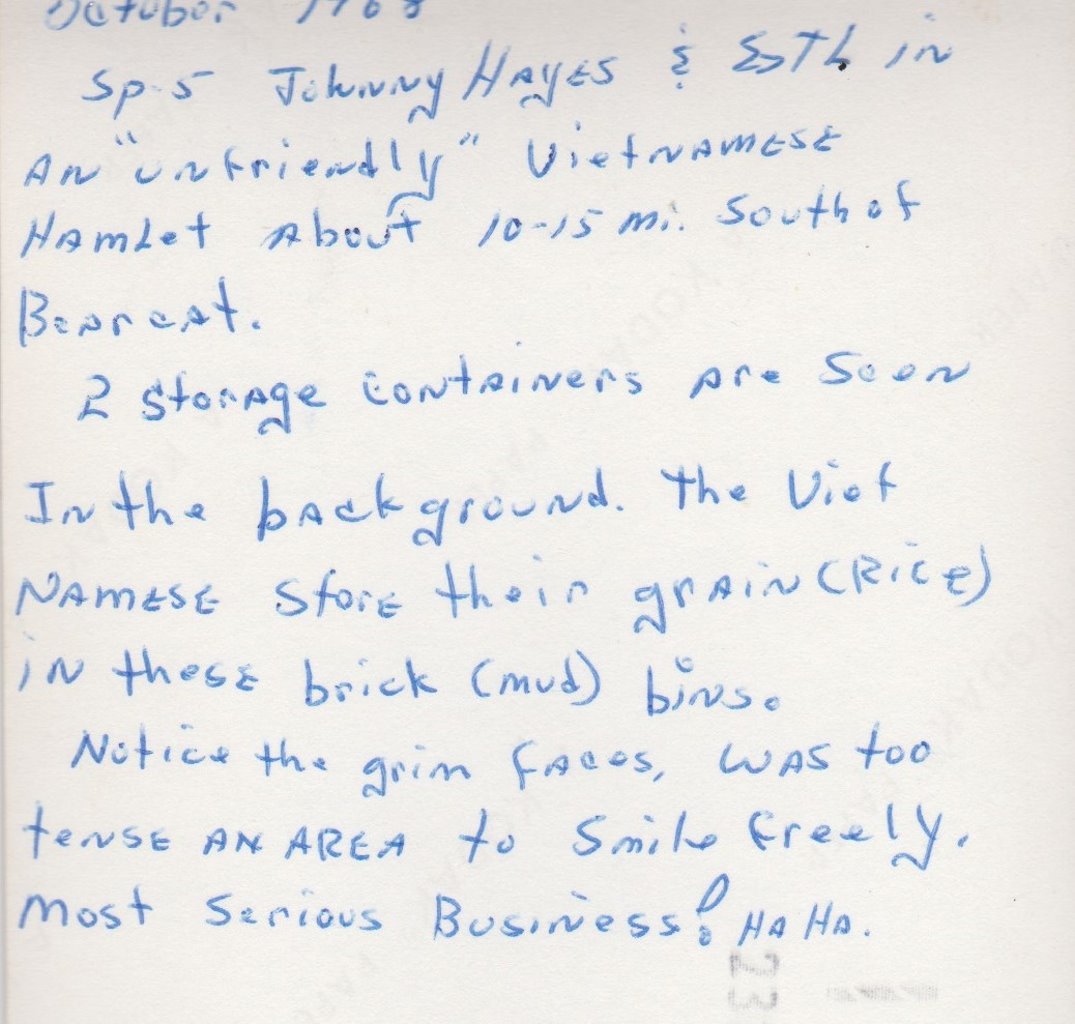 October 1968
Sp-5 Johnny Hayes & ESTL in
AN "unfriendly" VietNAMESE
HAMLet About 10-15 mi. South of
Bearcat.
2 Storage containers are Seen
In the background. The Viet
NAMESE Store their grain (Rice)
in these brick (mud) bins.
Notice the grim faces, WAS too
tense AN AREA to Smile freely.
Most Serious Business! HA HA.
23